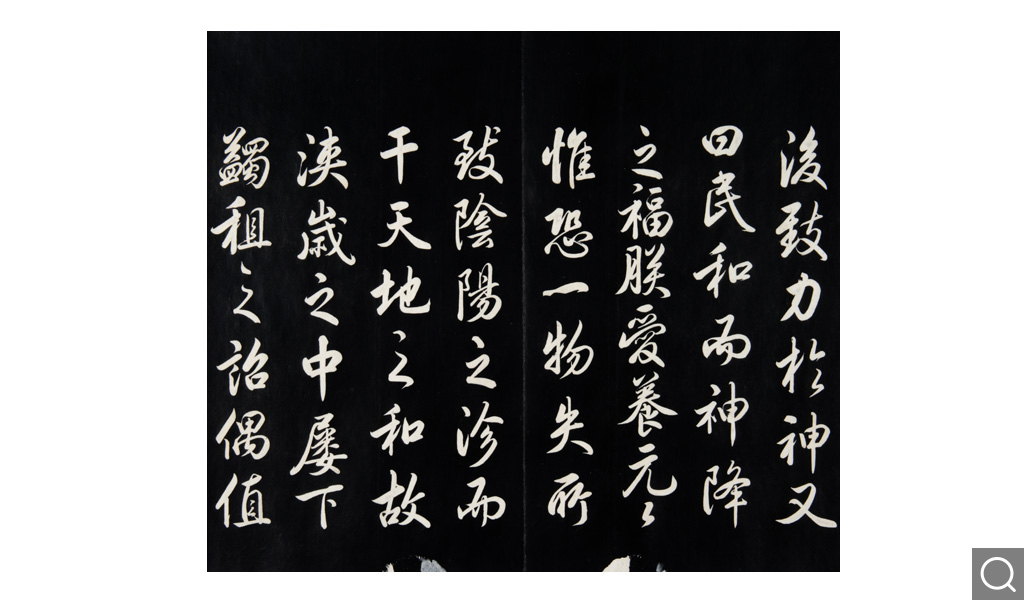 後致力於神又
曰民和而神降
之福朕愛養元々
惟恐一物失所
致陰陽之沴而
干天地之和故
浹歲之中屢下
蠲租之詔偶值